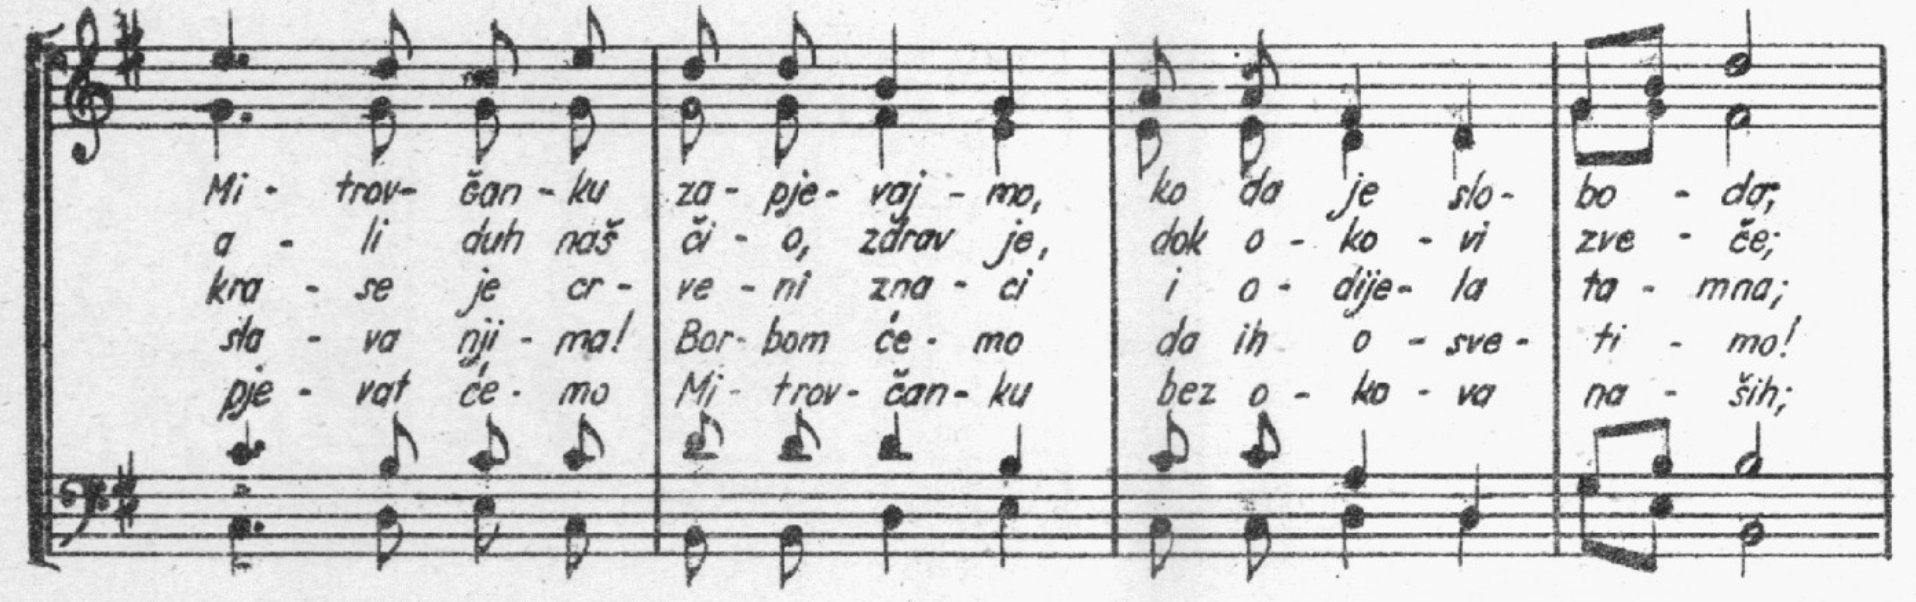 Mi - trov- čan - ku za - pje - vaj - mo, ko da je slo - bo - da;
a - li duh naš či - o, zdrav je, dok o - ko - vi zve - če;
kra - se je cr - ve - ni zna - ci i o - dije - la ta - mna;
sla - va nji - ma! Bor - bom će - mo da ih o - sve - ti - mo!
pje - vat će - mo Mi - trov - čan - ku bez o - ko - va na - ših;